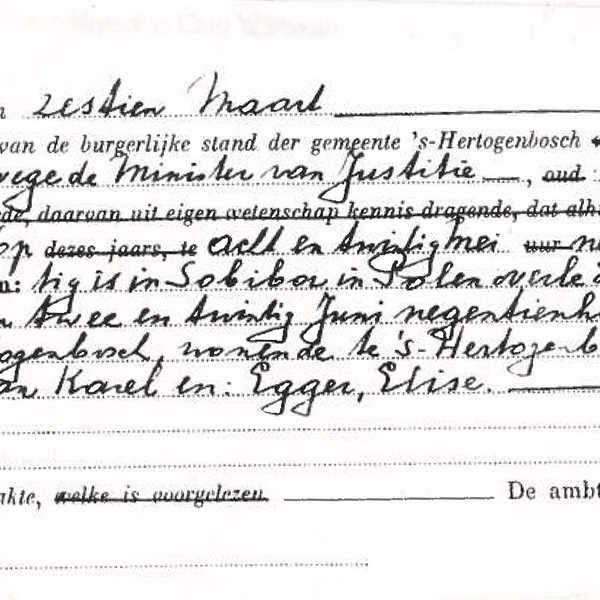 n zestien Maart
van de burgerlijke stand der gemeente 's-Hertogenbosch
wege de Minister van Justitie , oud
de, daarvan uit eigen wetenschap kennis dragende, dat alh
op dezes jaars, te acht en twintig Mei uur n
n: tig is in Sobibor in Polen overle
n twee en twintig Juni negentienh
ogenbosch, wonende te 's-Hertogenb
an Karel en: Egger, Elise.
akte, welke is voorgelezen. De ambt